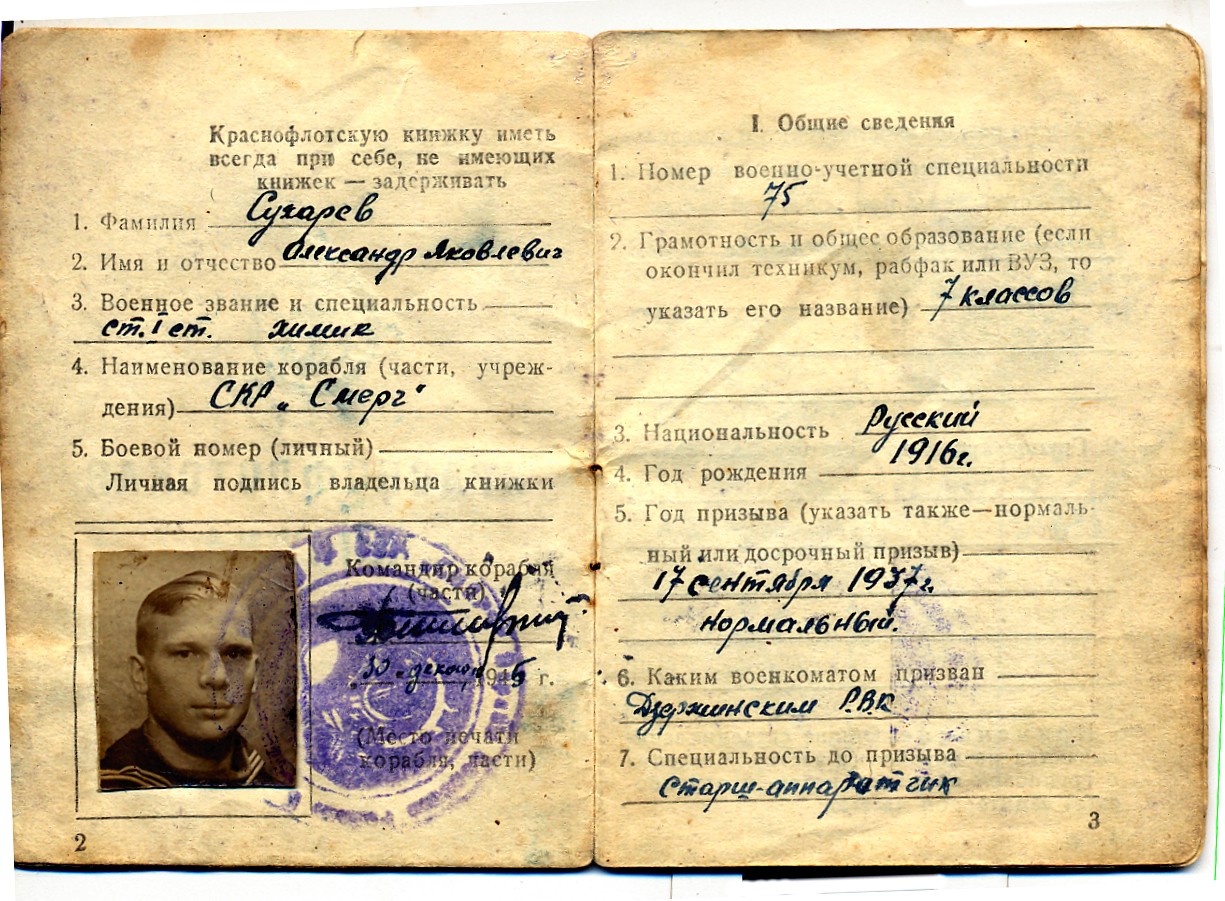 Краснофлотскую книжку иметь
всегда при себе, не имеющих
книжек — задерживать
1. Фамилия Сухарев
2. Имя и отчество Александр Яковлевич
3. Военное звание и специальность
ст. I ст. химик
4. Наименование корабля (части, учреж-
дения) СКР „Смерч"
5. Боевой номер (личный)
Личная подпись владельца книжки
Командир корабля
(части)
„30" декабря 1945 г.
(Место печати
корабля, части)
2
I. Общие сведения
1. Номер военно-учетной специальности
75
2. Грамотность и общее образование (если
окончил техникум, рабфак или ВУЗ, то
указать его название) 7 классов
3. Национальность Русский
4. Год рождения 1916г.
5. Год призыва (указать также—нормаль-
ный или досрочный призыв)
17 сентября 1937г.
нормальный.
6. Каким военкоматом призван
Дзержинским Р.В.К
7. Специальность до призыва
Старш-аппаратчик
3